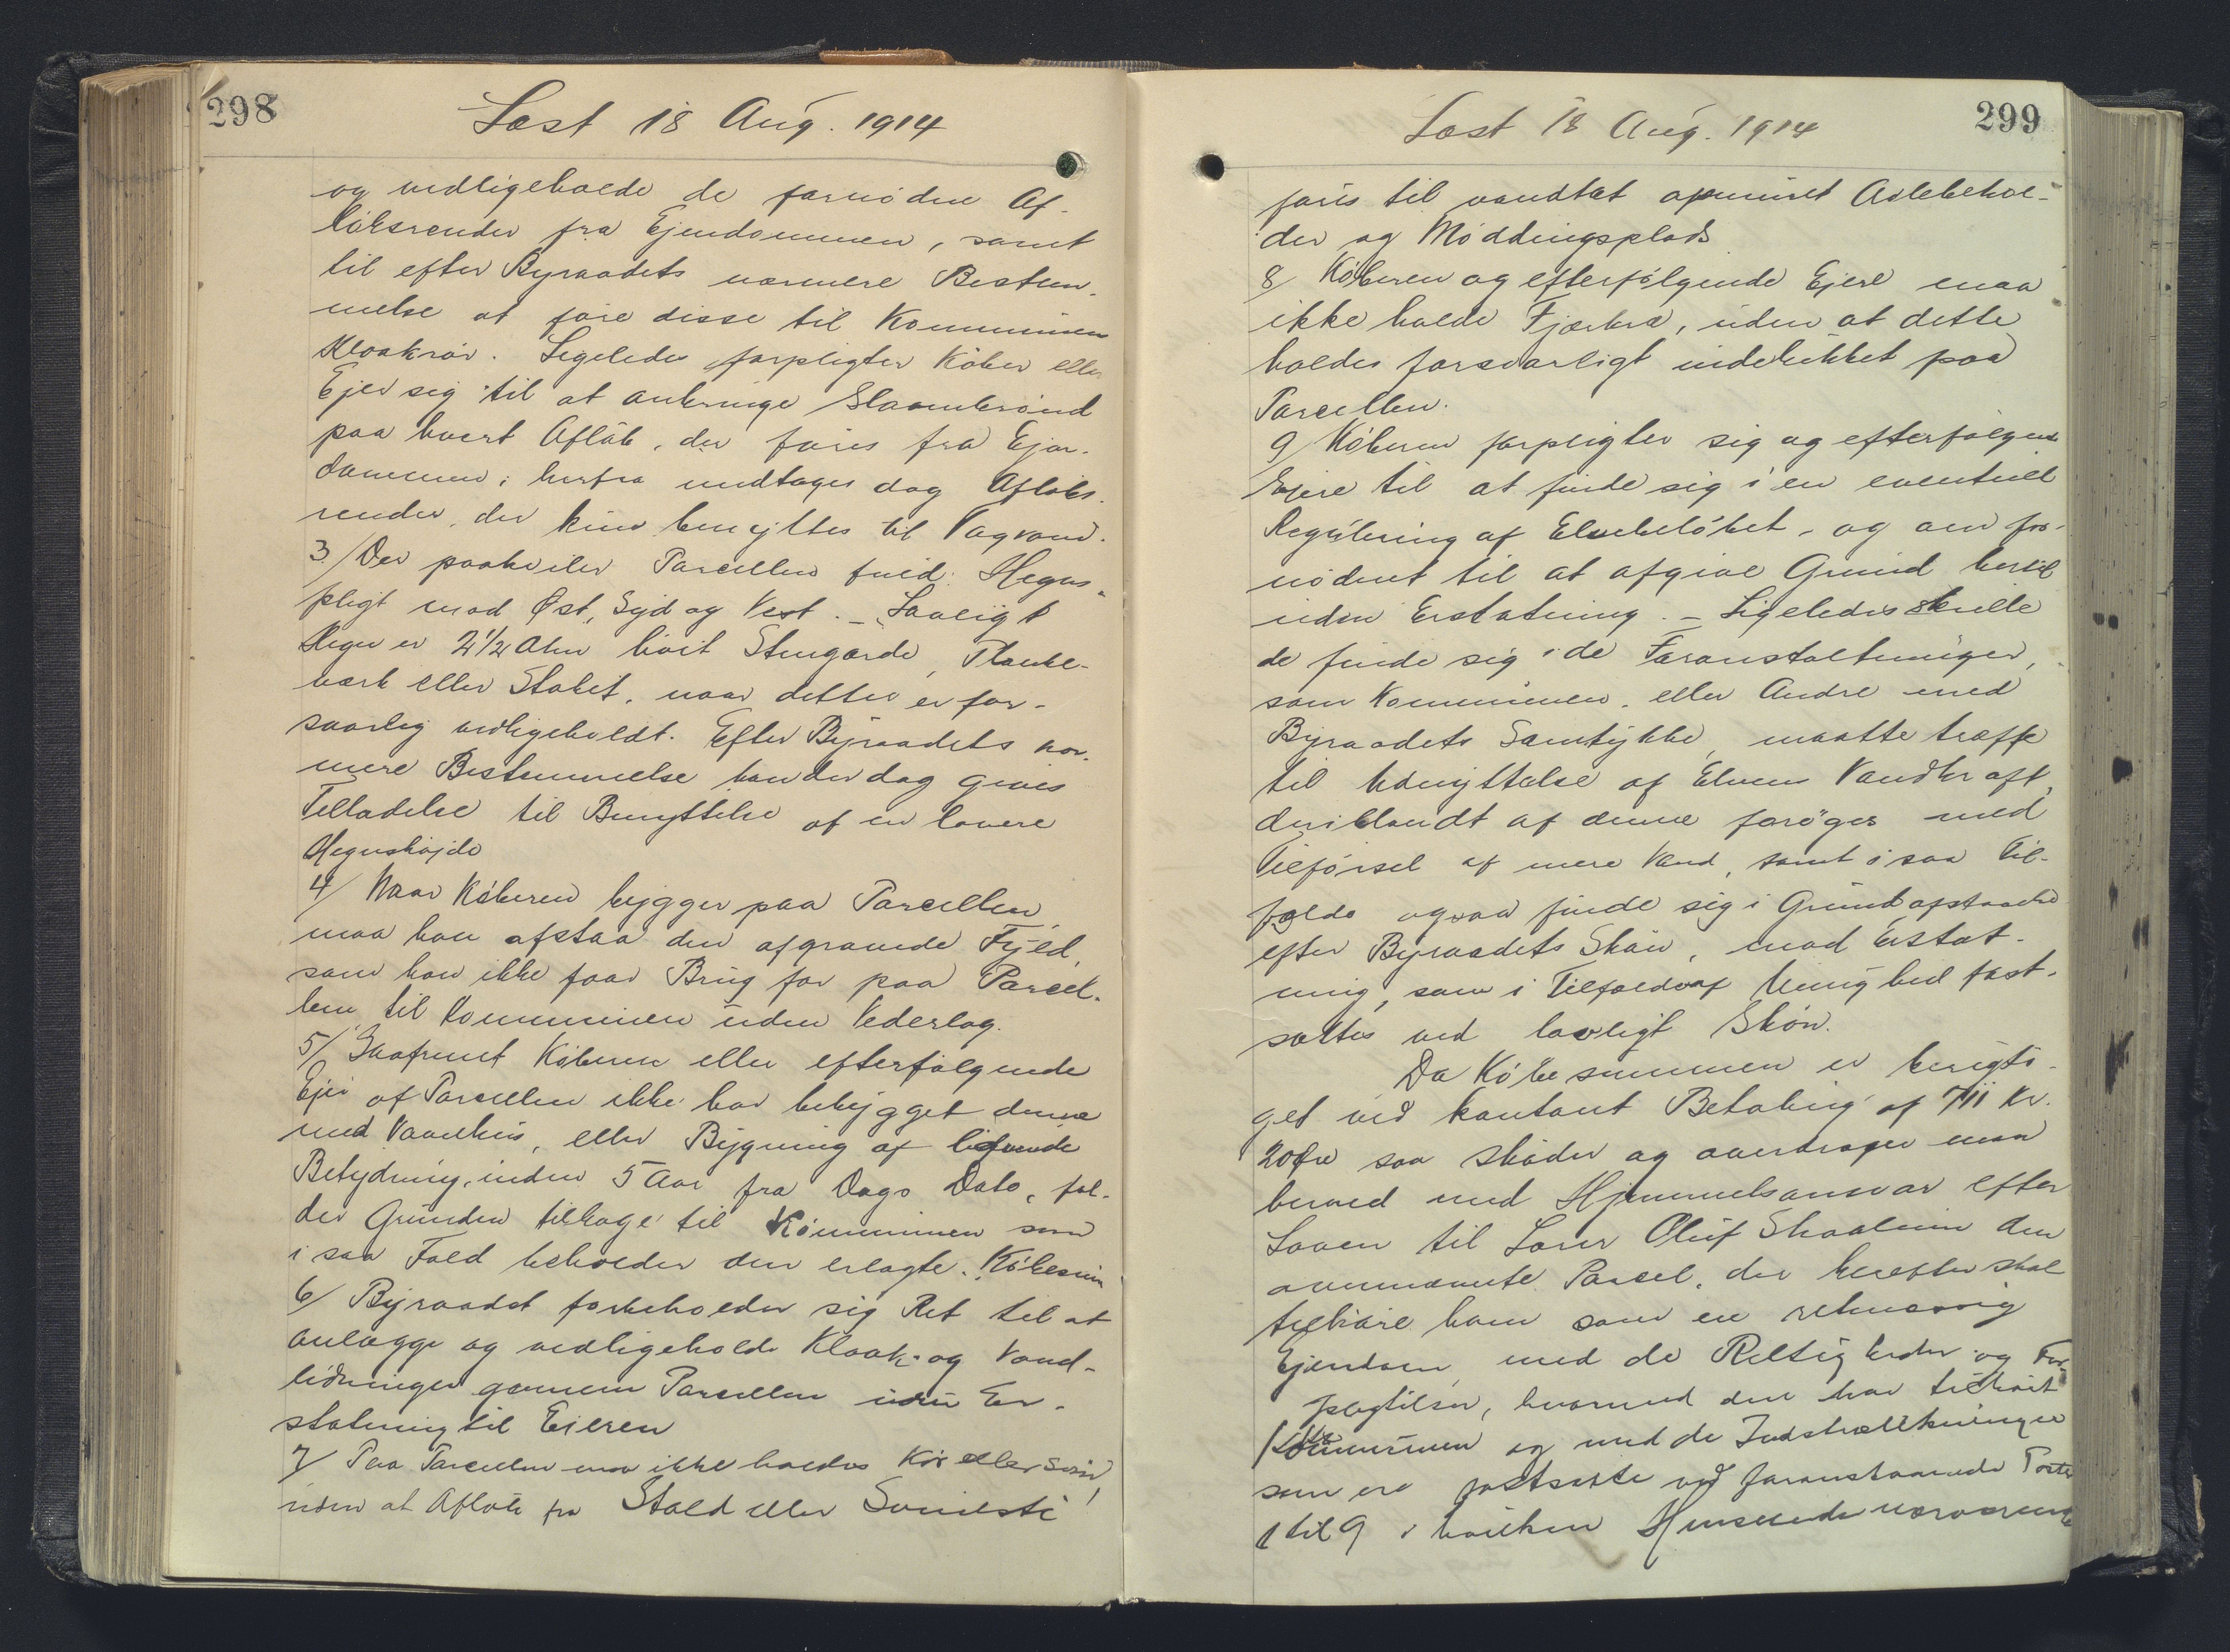 298
Læst 18 Aug. 1914
og vedligeholde de fornødne Af-
løbsrender fra Ejendommen, samt
til efter Byraadets nærmere Bestem-
melse at føre disse til Kommunen
Kloakrør. Ligeledes forpligter Køber eller
Ejer sig til at anbringe Slambrønd
paa hvert Afløb, der føres fra Ejen-
dommen; herfra undtages dog Afløbs-
render, der kun benyttes til Tagvand.
3/ Der paahviler Parcellen fuld Hegns-
pligt mod Øst, Syd og Vest. – Lovligt
Hegn er 2 1/2 Alen høit Stengærde, Planke-
værk eller Stakit, naar dette er for-
svarlig vedligeholdt. Efter Byraadets nær-
mere Bestemmelse kan der dog gives
Tilladelse til Benyttelse af en lavere
Hegnshøjde
4/ Naar Køberen bygger paa Parcellen,
maa han afstaa den afgravede Fyld,
som han ikke faar Brug for paa Parcel-
len til Kommunen uden Vederlag.
5/ Saafremt Køberen eller efterfølgende
Ejer af Parcellen ikke har bebygget denne
med Vaanhus, eller Bygning af lignende
Betydning, inden 5 Aar fra Dags Dato, fal-
der Grunden tilbage til Kommunen som
i saa Fald beholder den erlagte Købesum
6/ Byraadet forbeholder sig Ret til at
anlægge og vedligeholde Kloak- og Vand-
ledninger gennem Parcellen uden Er-
statning til Eieren
7/ Paa Parcellen maa ikke holdes Kør eller Svin,
uden at Afløb fra Stald eller Svinesti
299
Læst 18 Aug. 1914
føres til vandtæt opmuret Aslebehol-
der og Møddingsplads
8/ Køberen og efterfølgende Ejere maa
ikke holde Fjærkræ, uden at dette
holdes forsvarligt indelukket paa
Parcellen.
9/ Køberen forpligter sig og efterfølgende
Ejere til at finde sig i en eventuel
Regulering af Elveløbet, og om for-
nødent til at afgive Grund hertil
uden Erstatning. – Ligeledes skulle
de finde sig i de Foranstaltninger,
som Kommunen, eller Andre med
Byraadets Samtykke, maatte træffe
til Udnyttelse af Elvens Vandkraft,
deriblandt at denne forøges med
Tilførsel af mere Vand, samt i saa Til-
fælde ogsaa finde sig i Grundafstaaelse
efter Byraadets Skøn, mod Erstat-
ning, som i Tilfælde af Uenighed fast-
sættes ved lovligt Skøn.
Da Købesummen er berigti-
get ved kontant Betaling af 711 Kr.
20 Øre saa skøder og overdrager man
herved med Hjemmelsansvar efter
Loven til Lærer Oluf Skaalum den
ovennævnte Parcel, der herefter skal
tilhøre ham som en retmæssig
Ejendom, med de Rettigheder og For-
pligtelser, hvormed den har tilhørt
Kommunen og med de Indskrænkninger
som ere fastsatte ved foranstaaende Poster
1 til 9 i hvilken Henseende nærværende